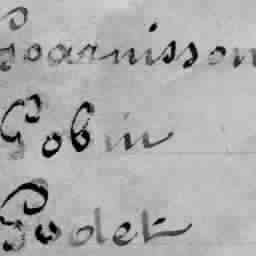 Goarnisson
Gobin
Godet